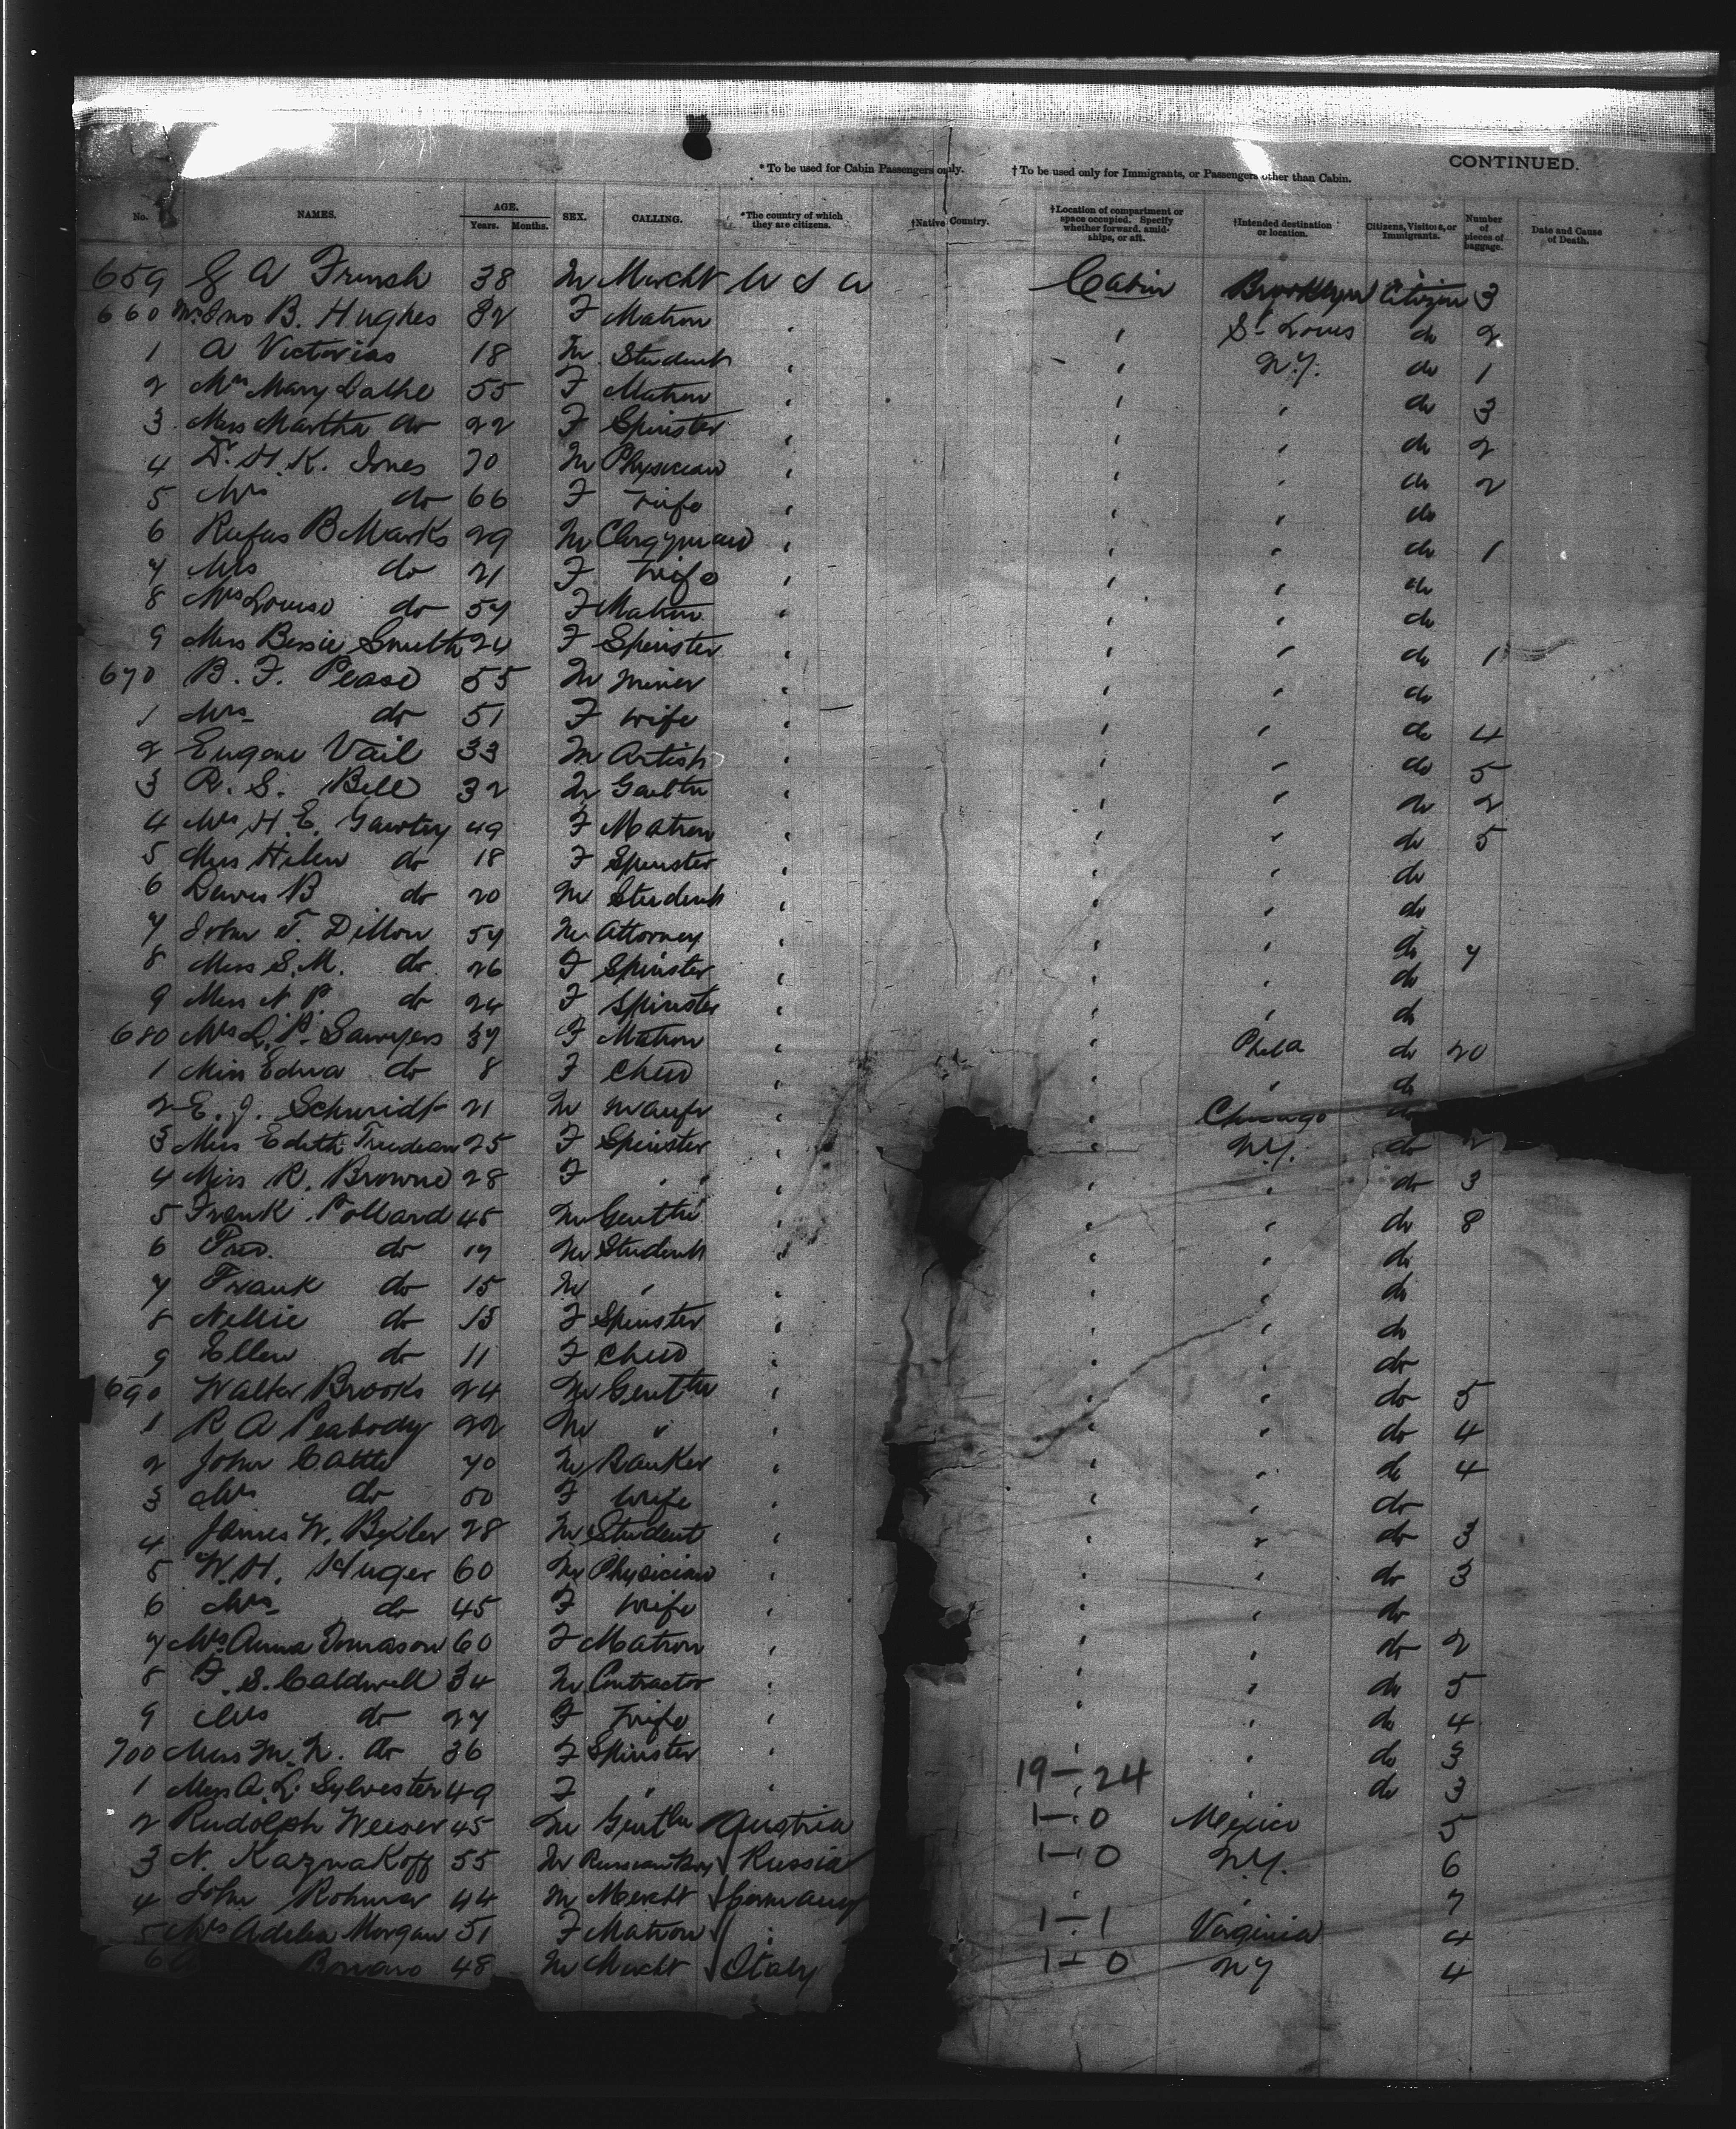 CONTINUED.
* To be used for Cabin Passengers only. † To be used only for Immigrants, or Passengers other than Cabin.
No. NAMES. AGE. Years. Months. SEX. CALLING. *The country of which they are citizens. †Native Country. †Location of compartment or space occupied. Specify whether forward, amidships, or aft. †Intended destination or location. Citizens, Visitors, or Immigrants. Number of pieces of baggage. Date and Cause of Death.
659 A 38 M Mercht U S A Cabin Brooklyn Citizen 3
660 Mrs Jno B. Hughes 32 F Matron " " St Louis do 2
1 A Victorias 18 M Student " " N.Y. do 1
2 Mrs Mary Lathe 55 F Matron " " " do 3
3 Miss Martha do 22 F Spinster " " " do 2
4 Dr. H. K. Jones 70 M Physician " " " do 2
5 Mrs do 66 F Wife " " " do
6 Rufus B Marks 29 M Clergyman " " " do 1
7 Mrs do 21 F Wife " " " do
8 Mrs Louise do 57 F Matron " " " do
9 Miss Bessie Smith 24 F Spinster " " " do 1
670 B. F. Pease 55 M Miner " " " do
1 Mrs do 51 F Wife " " " do 4
2 Eugene Vail 33 M Artist " " " do 5
3 R. S. Bell 32 M Gentln " " " do 2
4 Mrs H. E. Gawtry 49 F Matron " " " do 5
5 Miss Helen do 18 F Spinster " " " do
6 Lewis B do 20 M Student " " " do
7 John F. Dillon 57 M Attorney " " " do 7
8 Miss S. M. do 26 F Spinster " " " do
9 Miss N. P. do 24 F Spinster " " " do
680 Mrs L. P. Sawyers 37 F Matron " " Phila do 20
1 Miss Edna do 8 F Child " " " do
2 E. J. Schmidt 21 M Manfr " Chicago do
3 Miss Edith Trudeau 25 F Spinster " " N.Y. do 2
4 Miss R. Browne 28 F " " " " " do 3
5 Frank Pollard 45 M Gentln " " " do 8
6 do 17 M Student " " " do
7 Frank do 15 M " " " " do
8 Nellie do 13 F Spinster " " " do
9 Ellen do 11 F Child " " " do
690 Walter Brooks 24 M Gentln " " " do 5
1 R A Peabody 22 M " " " " do 4
2 John 70 M Banker " " " do 4
3 Mrs do F Wife " " " do
4 James W. Bixler 28 M Student " " " do 3
5 W. H. Huger 60 M Physician " " " do 3
6 Mrs do 45 F Wife " " " do
7 Mrs Anna 60 F Matron " " " do 2
8 F. S. Caldwell 34 M Contractor " " " do 5
9 Mrs do 27 F Wife " " " do 4
700 Miss M. N. do 36 F Spinster " " " do 3
1 Miss A. L. Sylvester 49 F " " 19-24 " do 3
2 Rudolph Weeser 45 M Gentln Austria 1-0 Mexico 5
3 N. Kaznakoff 55 M Russia 1-0 N.Y. 6
4 John Rohmer 44 M Mercht Germany " " 7
5 Mrs Adelea Morgan 51 F Matron " 1-1 Virginia 4
6 48 M Mercht Italy 1-0 N Y 4